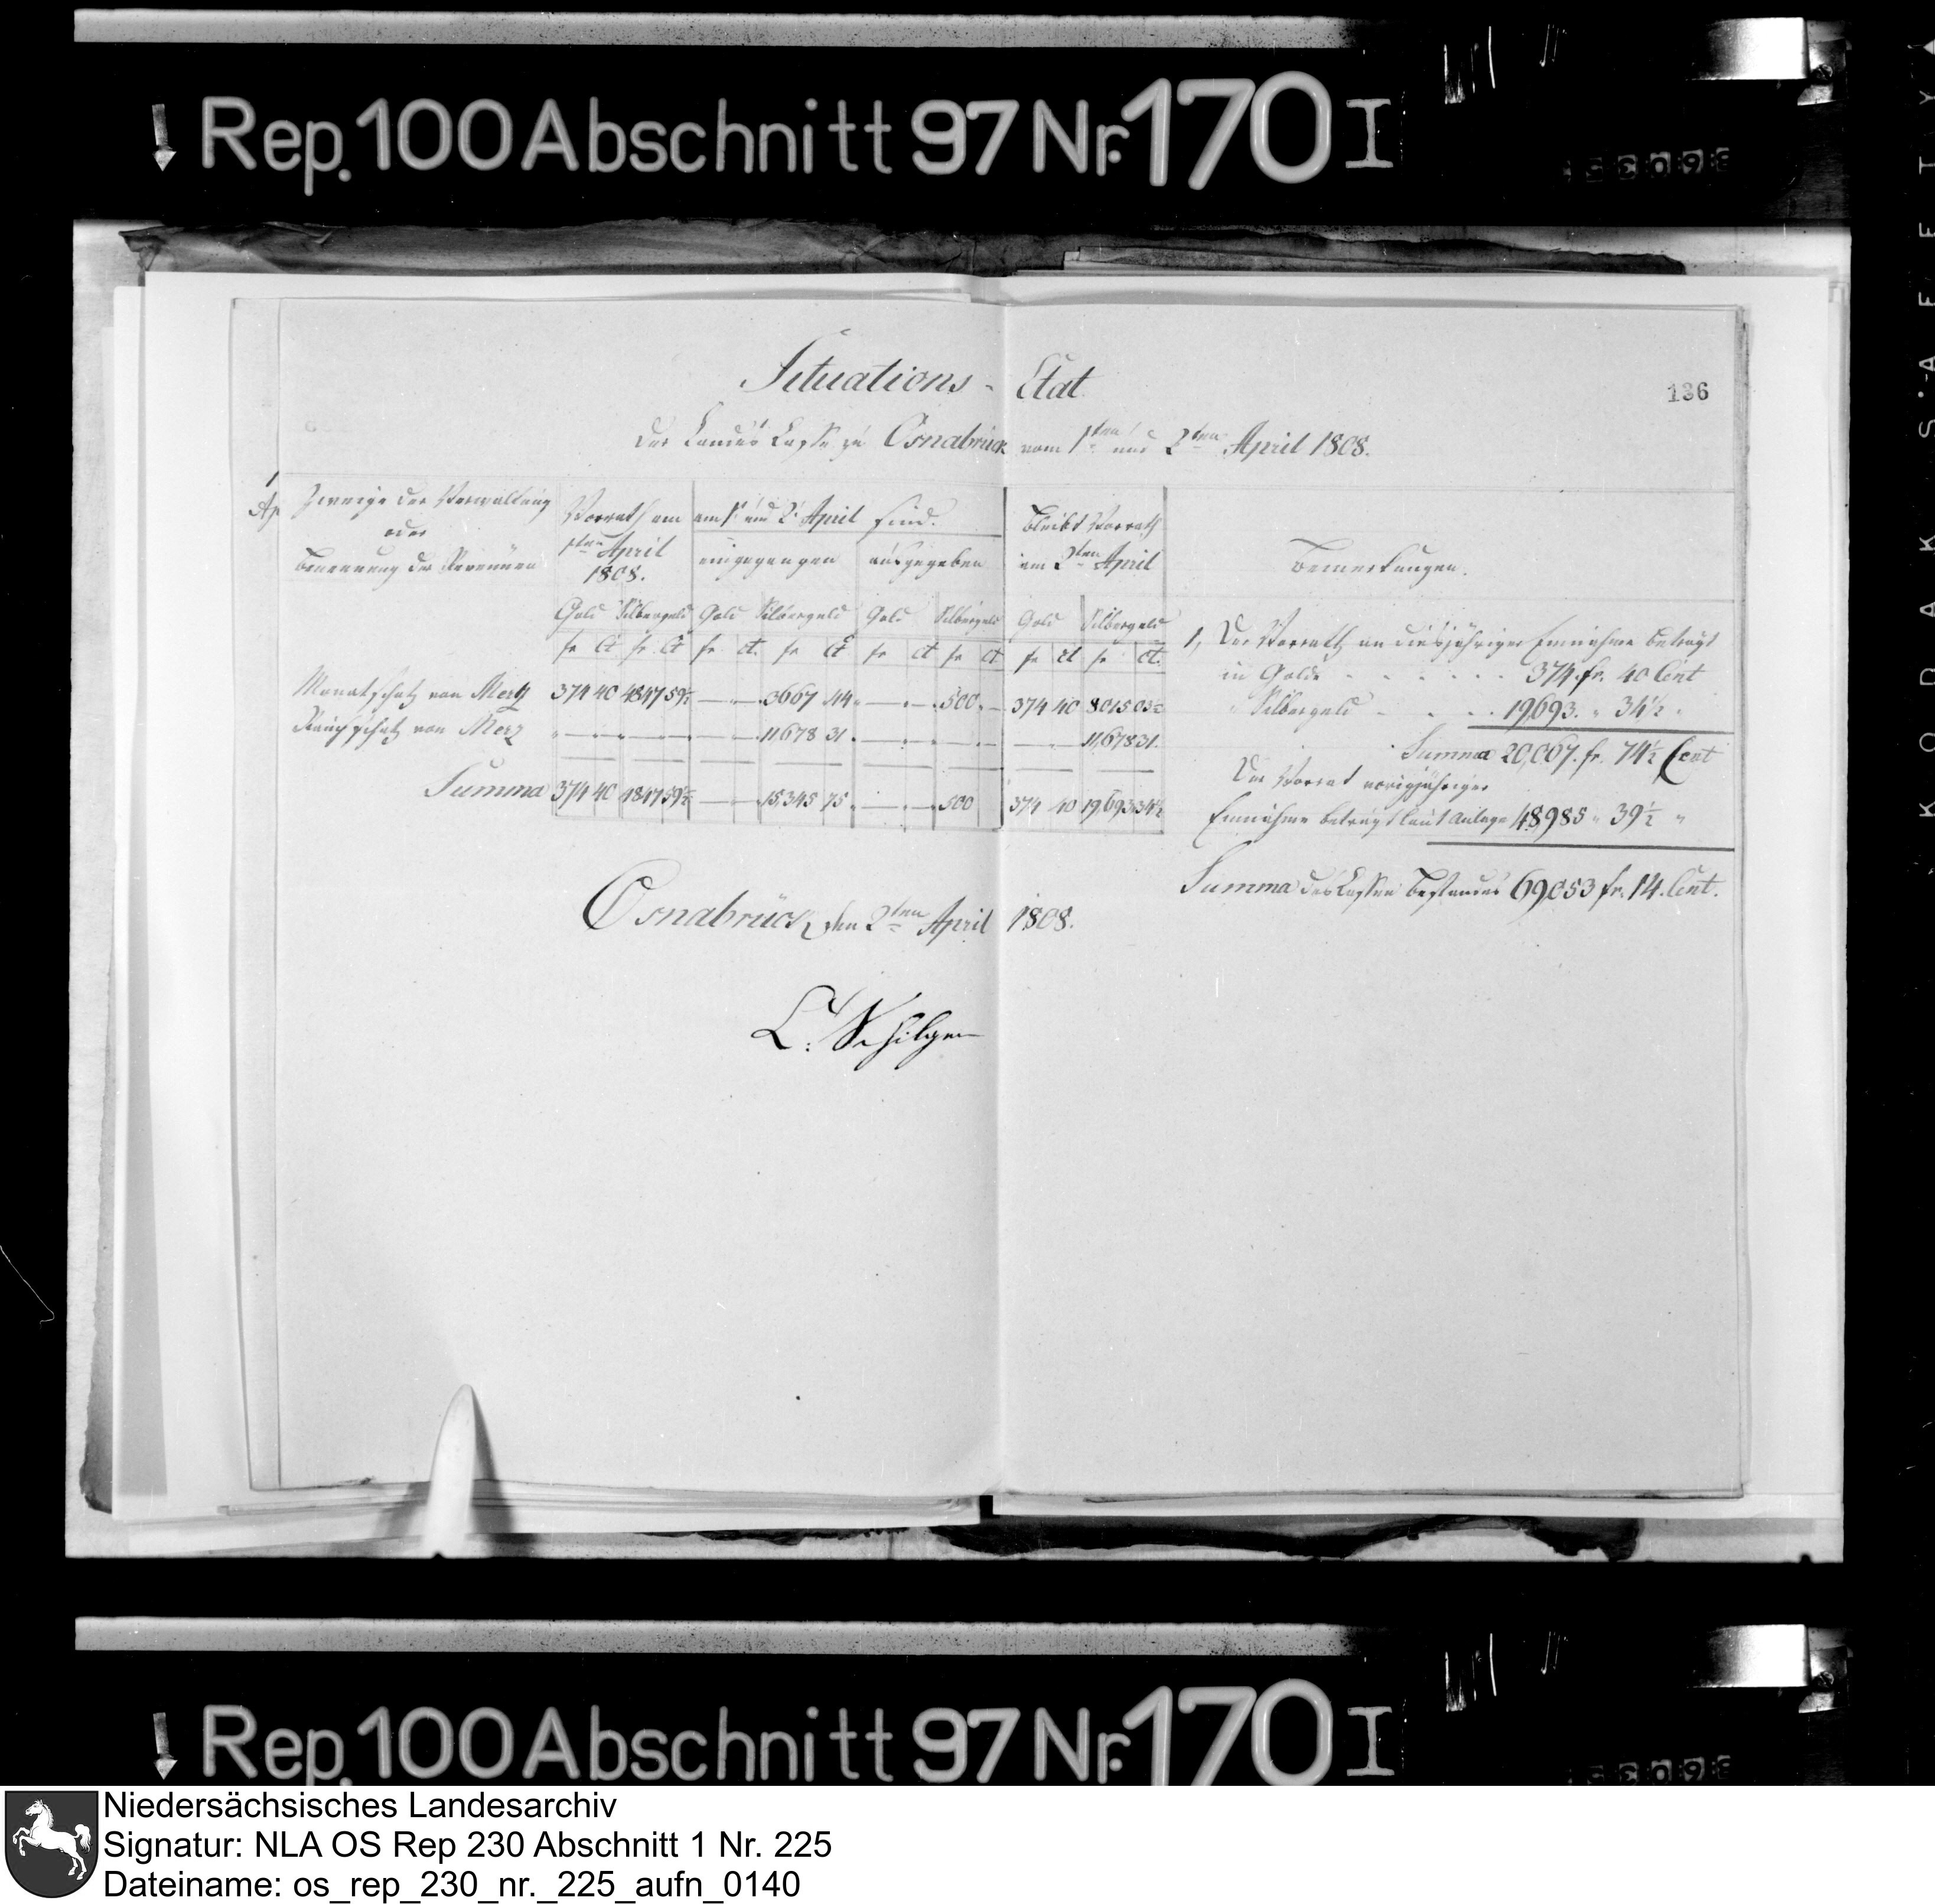 Rep. 100 Abschnitt 97 Nr. 170 I
Situations - Etat
136
der Landes Casse zu Osnabrück vom 1ten und 2ten April 1808.
Zweige der Verwaltung
oder
Benennung der Revenüen
Vorrath am
1ten April
1808.
am 1t und 2t April sind.
eingegangen
ausgegeben
bleibt Vorrath
am 2ten April
Bemerkungen.
Gold Silbergeld Gold Silbergeld Gold Silbergeld Gold Silbergeld
fr Ct fr Ct fr ct. fr Ct fr ct fr ct fr ct fr ct.
Monatschatz von Mertz 374 40 4847 59½ 3667 44 500 374 40 8015 03½
Rauchschatz von Merz 11678 31 11,678 31
Summa 374 40 4847 59½ 15,345 75 500 374 40 19,693 34½
1, Der Vorrath an diesjähriger Einnahme beträgt
in Golde 374. fr. 40 Cent
" Silbergeld 19,693. " 34½ "
Summa 20,067. fr. 74½ Cent
Der Vorrat vorigjähriger
Einnahme beträgt laut Anlage 48985 " 39½ "
Summa des Cassen Bestandes 69,053 fr. 14. Cent.
Osnabrück den 2ten April 1808.
C. Schilgen
Rep. 100 Abschnitt 97 Nr. 170 I
Niedersächsisches Landesarchiv
Signatur: NLA OS Rep 230 Abschnitt 1 Nr. 225
Dateiname: os_rep_230_nr._225_aufn_0140
KODAK SAFETY